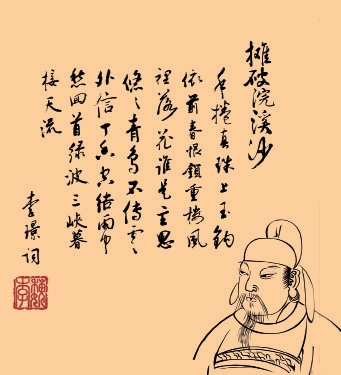 攤破浣溪沙
手捲真珠上玉鉤
依前春恨鎖重樓風
裡落花誰是主思
悠〻青鳥不傳雲
外信丁香空結雨中
愁回首綠波三峽暮
接天流
李璟詞